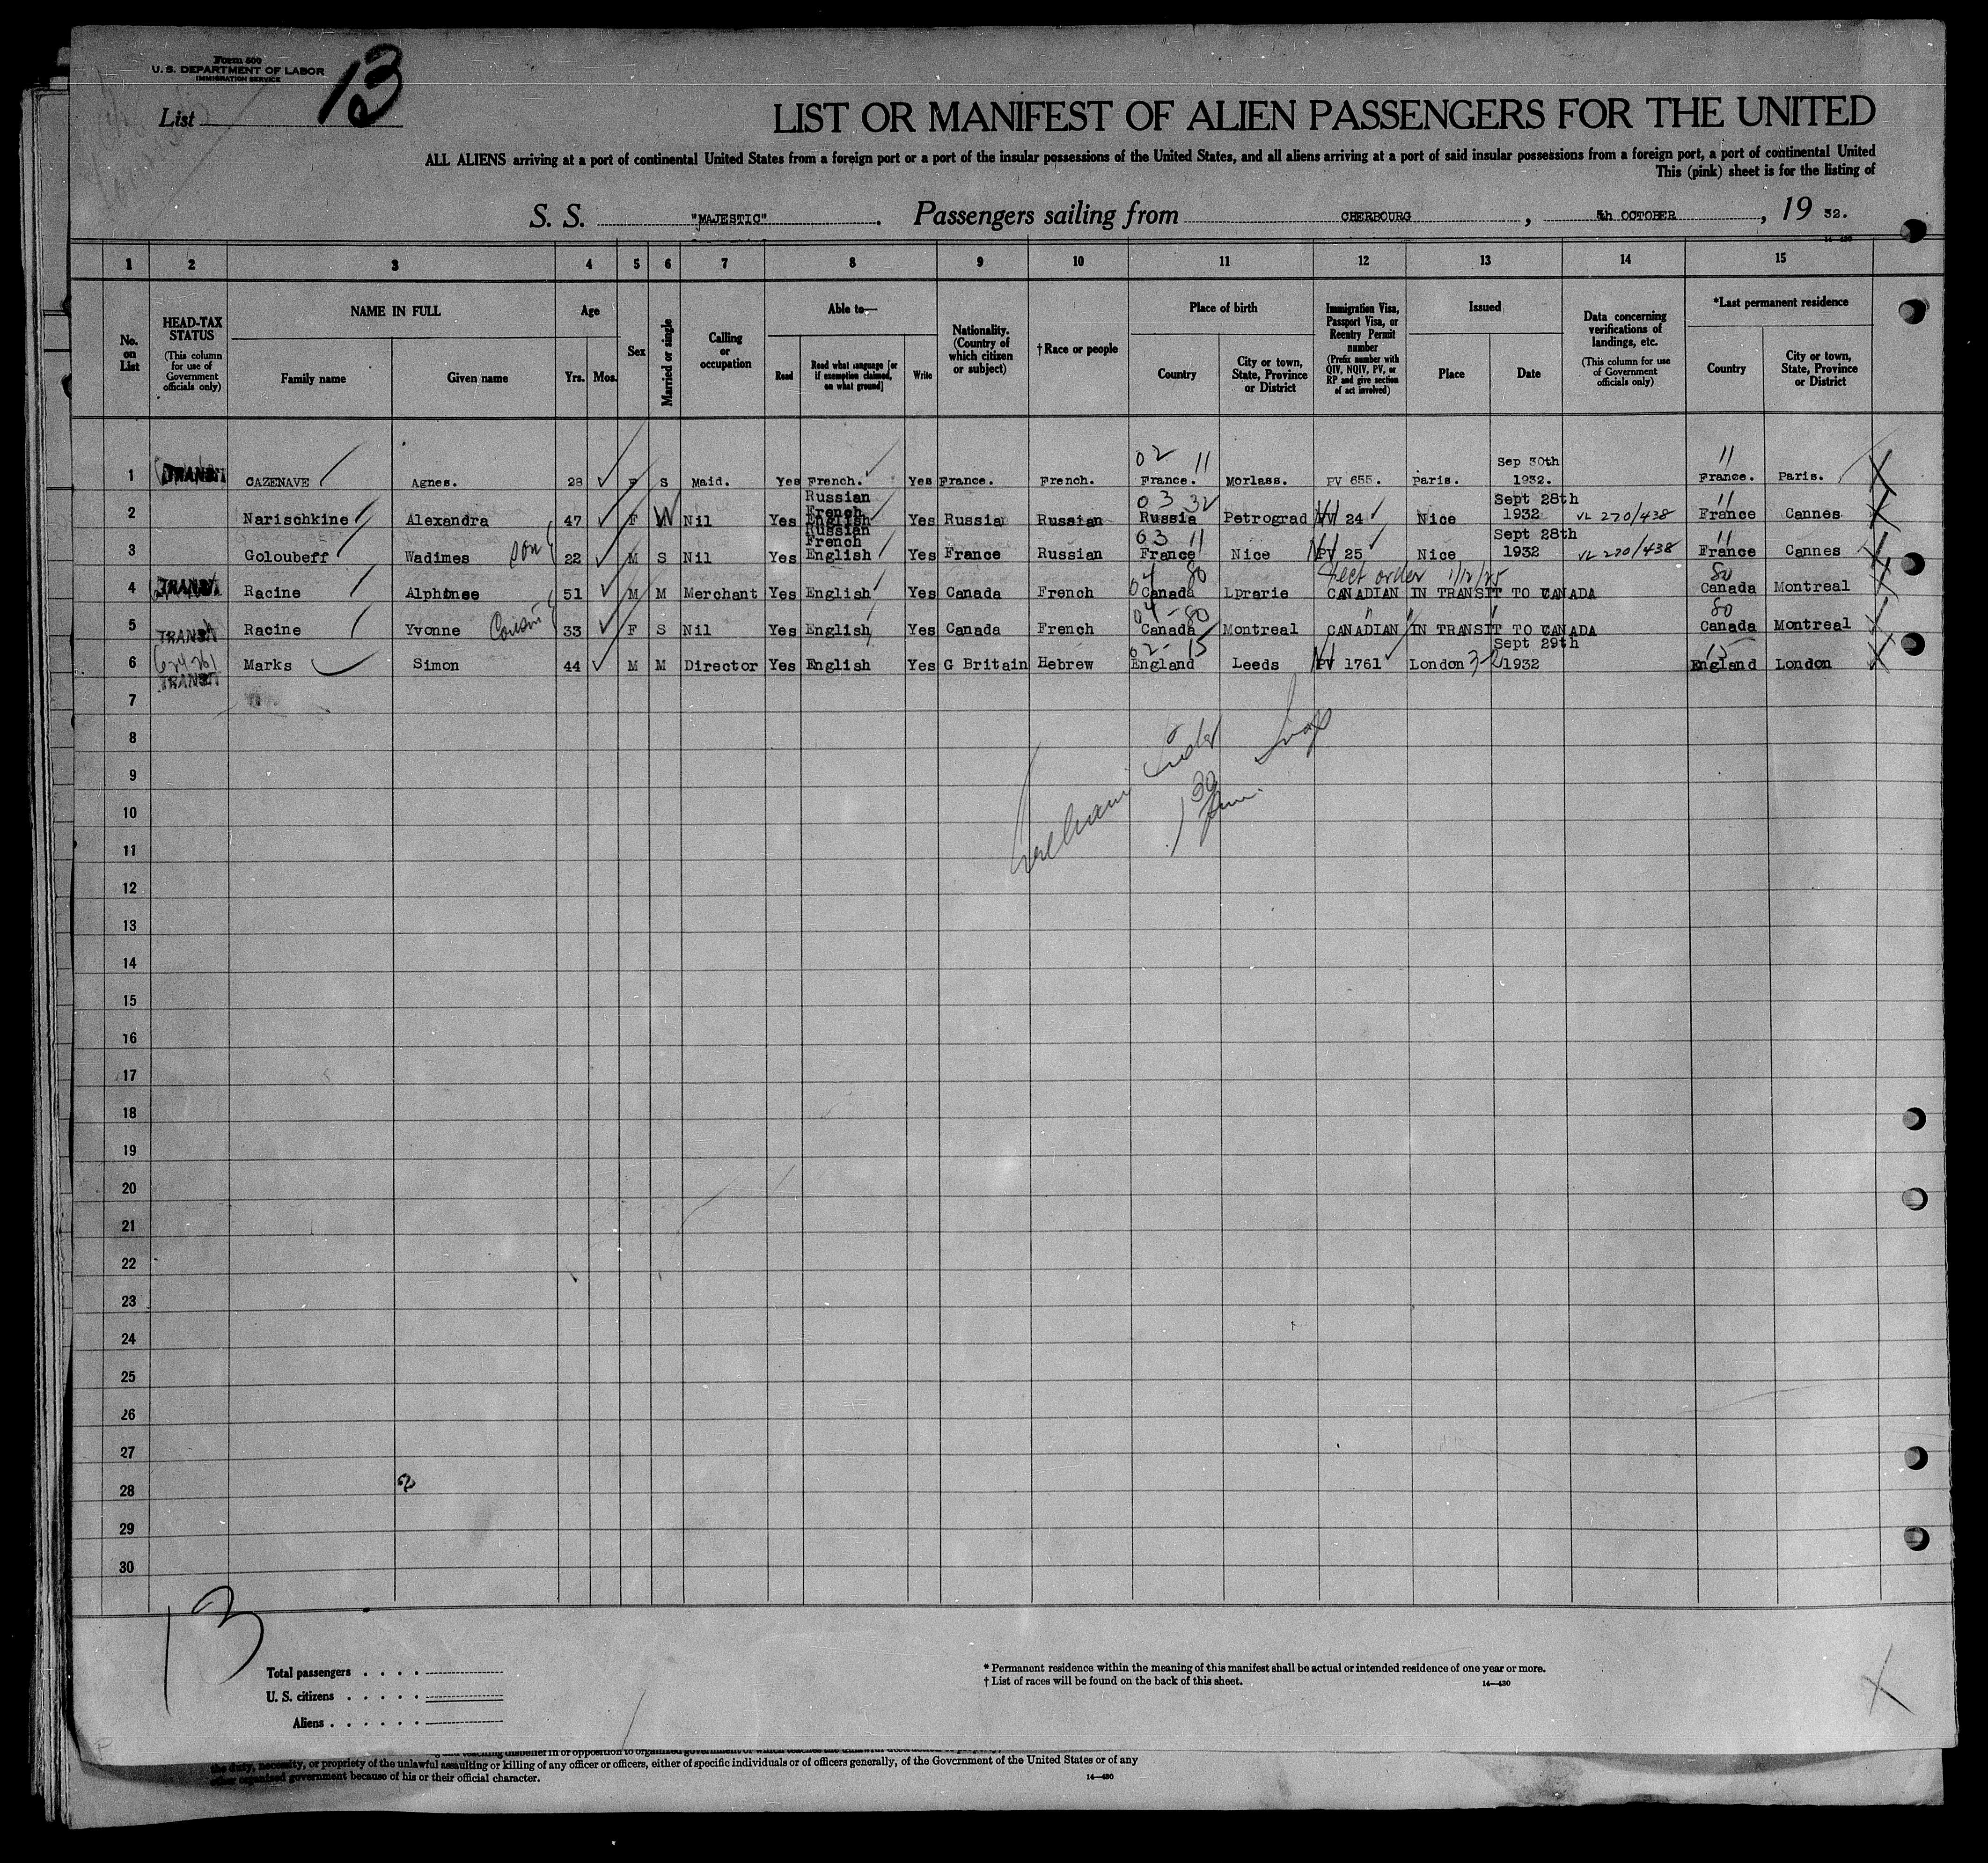 Form 500
U. S. DEPARTMENT OF LABOR
IMMIGRATION SERVICE
List 13
LIST OR MANIFEST OF ALIEN PASSENGERS FOR THE UNITED
ALL ALIENS arriving at a port of continental United States from a foreign port or a port of the insular possessions of the United States, and all aliens arriving at a port of said insular possessions from a foreign port, a port of continental United
This (pink) sheet is for the listing of
S. S. "MAJESTIC". Passengers sailing from CHERBOURG, 5th OCTOBER, 19 32.
1 2 3 4 5 6 7 8 9 10 11 12 13 14 15
No. on List
HEAD-TAX STATUS
(This column for use of Government officials only)
NAME IN FULL
Family name Given name
Age
Yrs. Mos.
Sex
Married or single
Calling or occupation
Able to—
Read
Read what language [or if exemption claimed, on what ground]
Write
Nationality. (Country of which citizen or subject)
† Race or people
Place of birth
Country
City or town, State, Province or District
Immigration Visa, Passport Visa, or Reentry Permit number
(Prefix number with QIV, NQIV, PV, or RP and give section of act involved)
Issued
Place Date
Data concerning verifications of landings, etc.
(This column for use of Government officials only)
*Last permanent residence
Country
City or town, State, Province or District
02 11 Sep 30th 11
1 TRANSIT CAZENAVE Agnes. 28 F S Maid. Yes French. Yes France. French. France. Morlass. PV 655. Paris. 1932. France. Paris.
Russian French 03 32 Sept 28th 11
2 Narischkine Alexandra 47 F W Nil Yes English Yes Russia Russian Russia Petrograd PV 24 Nice 1932 VL 270/438 France Cannes
Russian French 03 11 Sept 28th 11
3 Goloubeff Wadimes son 22 M S Nil Yes English Yes France Russian France Nice PV 25 Nice 1932 VL 270/438 France Cannes
04 80 order 1/12/25 80
4 TRANSIT Racine Alphonse 51 M M Merchant Yes English Yes Canada French Canada Lprarie CANADIAN IN TRANSIT TO CANADA Canada Montreal
04-80 " " " 80
5 TRANSIT Racine Yvonne Cousin 33 F S Nil Yes English Yes Canada French Canada Montreal CANADIAN IN TRANSIT TO CANADA Canada Montreal
02-15 Sept 29th 15
6 624261 Marks Simon 44 M M Director Yes English Yes G Britain Hebrew England Leeds PV 1761 London 1932 England London
TRANSIT
7
8
9
1 30 pm
10
11
12
13
14
15
16
17
18
19
20
21
22
23
24
25
26
27
28
29
30
13
Total passengers . . . .
U. S. citizens . . . . .
Aliens . . . . . .
* Permanent residence within the meaning of this manifest shall be actual or intended residence of one year or more.
† List of races will be found on the back of this sheet.
14—430
the duty, necessity, or propriety of the unlawful assaulting or killing of any officer or officers, either of specific individuals or of officers generally, of the Government of the United States or of any
other organized government because of his or their official character.
14—430